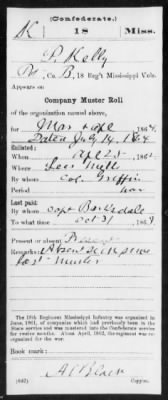 (Confederate.)
K 18 Miss.
P. Kelly
Pvt, Co. B, 18 Reg't Mississippi Vols.
Appears on
Company Muster Roll
of the organization named above,
for Mar & Apl, 1864.
Dated July 14, 1864
Enlisted:
When Apl 23, 186
Where
By whom Col. Griffin
Period war
Last paid:
By whom Capt Barksdale
To what time Oct 31, 186
Present or absent Present
Remarks: Absent since
last muster
The 18th Regiment Mississippi Infantry was organized in
June, 1861, of companies which had previously been in the
State service and was mustered into the Confederate service
for twelve months. About April, 1862, the regiment was re-
organized for the war.
Book mark:
(642) Copyist.